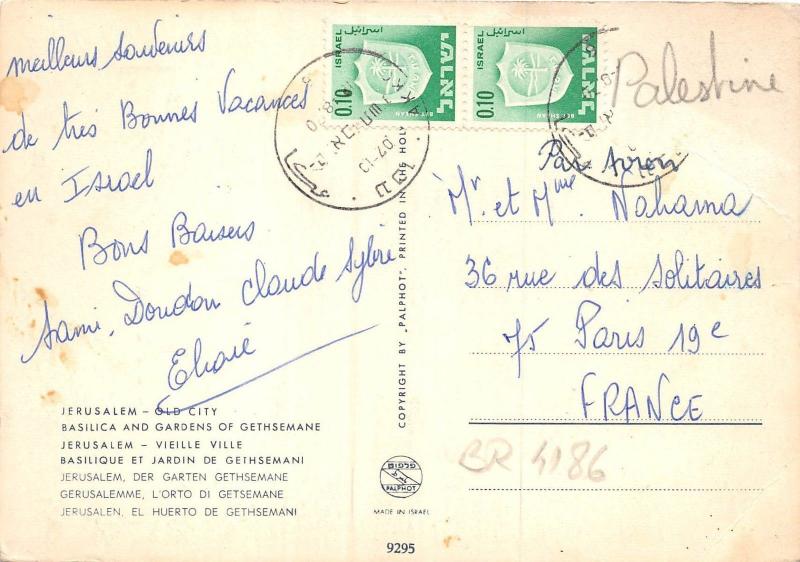 meilleurs souvenirs
de très Bonnes Vacances
en Israel
Bons Baisers
Sami, Doudou Claude Sylvie
Elsie
JERUSALEM – OLD CITY
BASILICA AND GARDENS OF GETHSEMANE
JERUSALEM – VIEILLE VILLE
BASILIQUE ET JARDIN DE GETHSEMANI
JERUSALEM, DER GARTEN GETHSEMANE
GERUSALEMME, L'ORTO DI GETSEMANE
JERUSALEN, EL HUERTO DE GETHSEMANI
COPYRIGHT BY „PALPHOT", PRINTED IN THE HOLY
פלפוט
PALPHOT
MADE IN ISRAEL
9295
ISRAEL اسرائيل
0.10 ישראל
BET SHEAN
ISRAEL اسرائيل
0.10 ישראל
BET SHEAN
Palestine
Par Avion
Mr. et Mme Nahama
36 rue des solitaires
75 Paris 19e
FRANCE
BR 4186